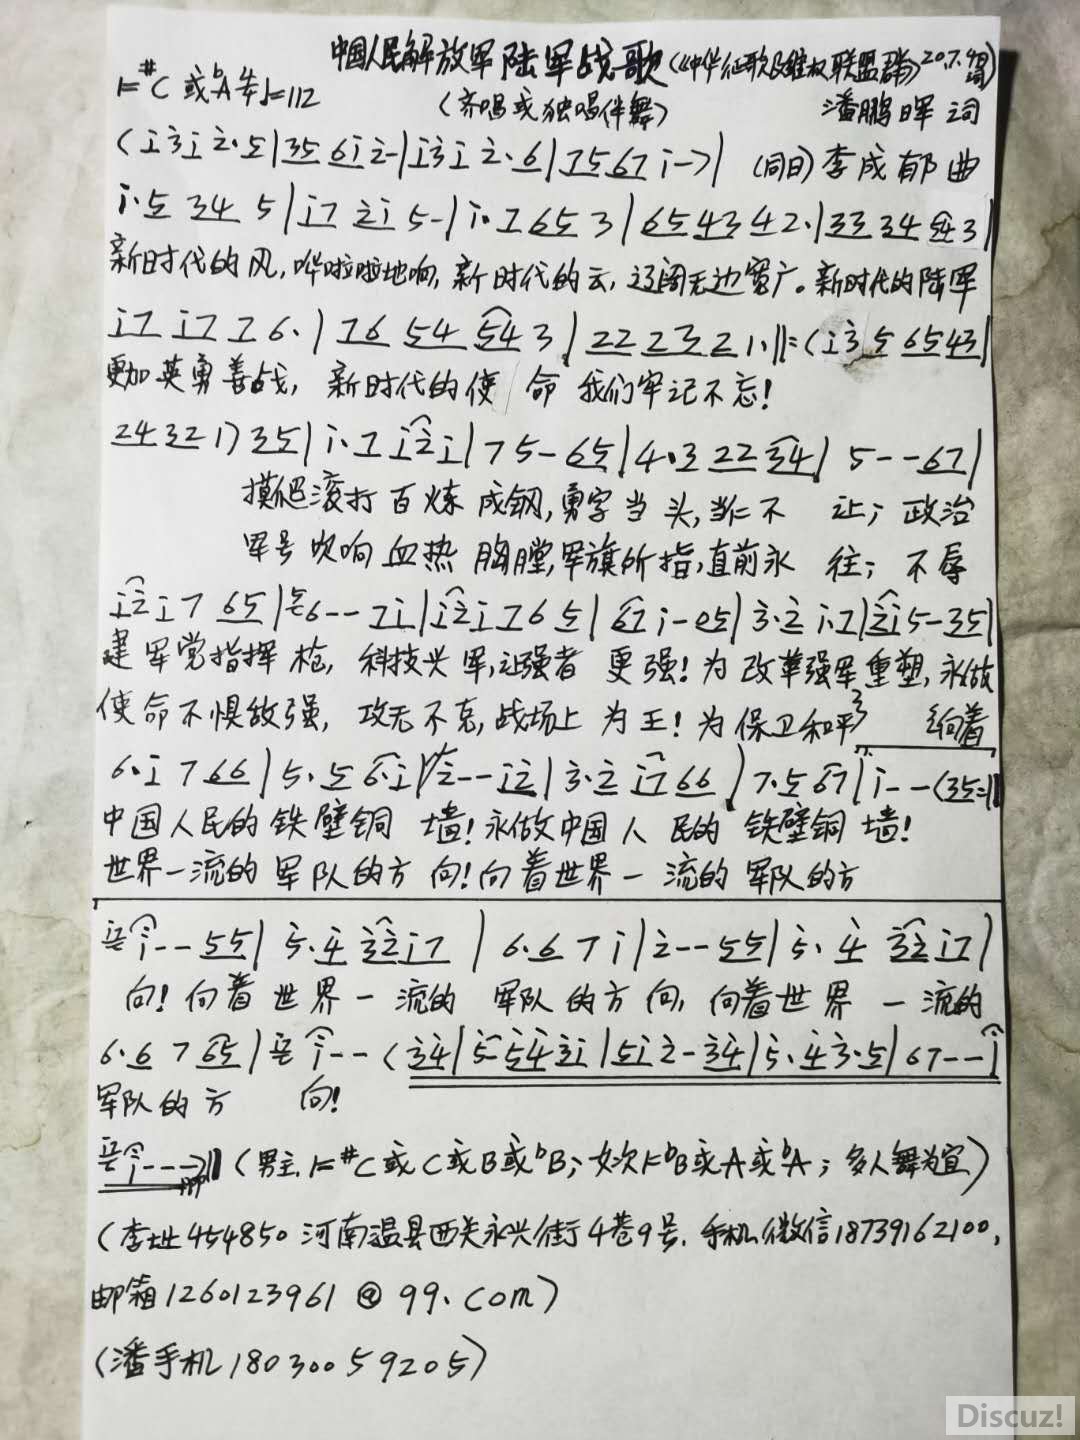 中国人民解放军陆军战歌(《中华征歌及维权联盟群》20.7.4
1=#C 或bA 4/4 ♩=112 (齐唱或独唱伴舞) 潘鹏晖 词
(i3i 2·5|35 6i 2-|i3i 2·6|75 67 i-)| (同日)李成郁曲
i·5 34 5|i7 2i 5-|i·7 65 3|65 43 42·|33 34 54 3|
新时代的风,哗啦啦地响,新时代的云,辽阔无边宽广。新时代的陆军
i7 i7 7 6·|76 54 54 3|22 23 2 1·‖:(i3 5 65 43|
更加英勇善战, 新时代的使 命 我们牢记不忘!
24 32 1) 35|i·7 i2 i|7 5- 65|4·3 22 34|5--67|
摸爬滚打百炼成钢,勇字当头,当仁不 让;政治
军号吹响血热胸膛,军旗所指,直前永 往;不辱
i2 i 7 65|6--7i|i2 i 7 6 5|67 i- 05|3·2 i·7|2i 5-35|
建军党指挥枪, 科技兴军,让强者 更强!为改革强军重塑,永做
使命不惧敌强, 攻无不克,战场上 为王!为保卫和平 向着
6·i 7 66|5·5 6·i|2--i2|3·2 i7 66|7·5 67|i--(35:‖
中国人民的铁壁铜 墙!永做中国人 民的 铁壁铜墙!
世界一流的军队的方 向!向着世界一 流的 军队的方
i--55|5·4 32 i7|6·6 7 i|2--55|5·4 32 i7|
向!向着世界一流的 军队的方向,向着世界 一流的
6·6 7 65|i--(34|5-54 3i|5i 2-34|5·4 3·5|67--i|
军队的方 向!
i---‖(男主1=#C或C或B或bB;女次1=bB或A或bA;多人舞为宜)
(李址454850河南温县西关永兴街4巷9号.手机微信18739162100,
邮箱1260123961@99.com)
(潘手机18030059205)
Discuz!